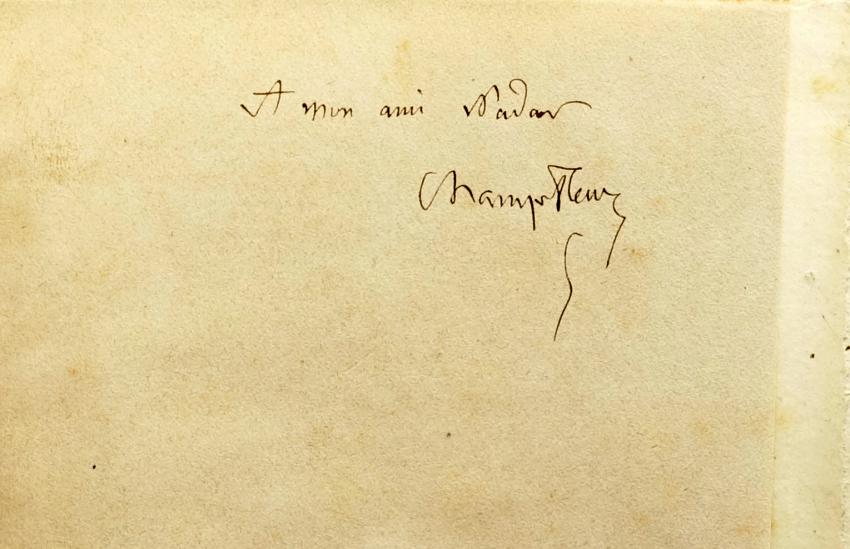 A mon ami Nadar
Champfleury